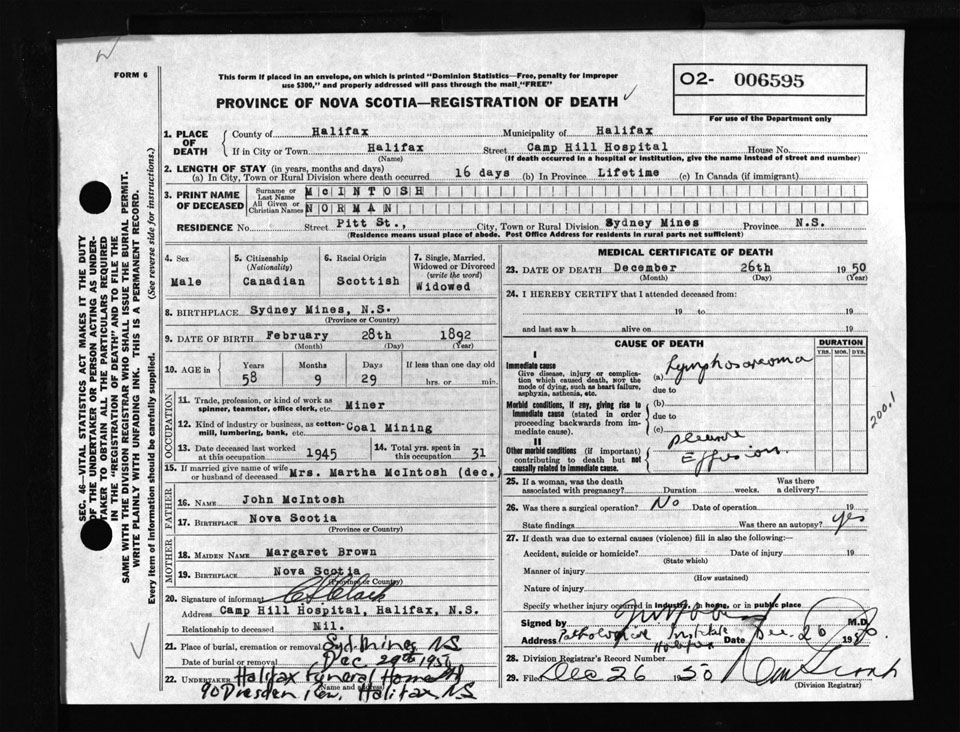 FORM 6
This form if placed in an envelope, on which is printed "Dominion Statistics—Free, penalty for improper
use $300," and properly addressed will pass through the mail "FREE"
O2- 006595
For use of the Department only
PROVINCE OF NOVA SCOTIA—REGISTRATION OF DEATH
SEC. 46—VITAL STATISTICS ACT MAKES IT THE DUTY
OF THE UNDERTAKER OR PERSON ACTING AS UNDER-
TAKER TO OBTAIN ALL THE PARTICULARS REQUIRED
IN THE "REGISTRATION OF DEATH" AND TO FILE THE
SAME WITH THE DIVISION REGISTRAR WHO SHALL ISSUE THE BURIAL PERMIT.
WRITE PLAINLY WITH UNFADING INK. THIS IS A PERMANENT RECORD.
Every item of information should be carefully supplied. (See reverse side for instructions.)
1. PLACE OF DEATH County of Halifax Municipality of Halifax
If in City or Town Halifax Street Camp Hill Hospital House No.
(Name) (If death occurred in a hospital or institution, give the name instead of street and number)
2. LENGTH OF STAY (in years, months and days)
(a) In City, Town or Rural Division where death occurred 16 days (b) In Province Lifetime (c) In Canada (if immigrant)
3. PRINT NAME OF DECEASED Surname or Last Name McINTOSH
All Given or Christian Names NORMAN
RESIDENCE No. Street Pitt St., City, Town or Rural Division Sydney Mines Province N.S.
(Residence means usual place of abode. Post Office Address for residents in rural parts not sufficient)
4. Sex Male
5. Citizenship (Nationality) Canadian
6. Racial Origin Scottish
7. Single, Married, Widowed or Divorced (write the word) Widowed
8. BIRTHPLACE Sydney Mines, N.S.
(Province or Country)
9. DATE OF BIRTH February 28th 1892
(Month) (Day) (Year)
10. AGE in Years 58 Months 9 Days 29 If less than one day old hrs. or min.
OCCUPATION
11. Trade, profession, or kind of work as
spinner, teamster, office clerk, etc. Miner
12. Kind of industry or business, as cotton-
mill, lumbering, bank, etc. Coal Mining
13. Date deceased last worked at this occupation 1945
14. Total yrs. spent in this occupation 31
15. If married give name of wife
or husband of deceased Mrs. Martha McIntosh (dec.)
FATHER
16. NAME John McIntosh
17. BIRTHPLACE Nova Scotia
(Province or Country)
MOTHER
18. MAIDEN NAME Margaret Brown
19. BIRTHPLACE Nova Scotia
(Province or Country)
20. Signature of informant
Address Camp Hill Hospital, Halifax, N.S.
Relationship to deceased Nil.
21. Place of burial, cremation or removal Syd. Mines NS
Date of burial or removal Dec 29th 1950
22. UNDERTAKER Halifax Funeral Home
(Name and address)
90 Dresden Row, Halifax, NS
MEDICAL CERTIFICATE OF DEATH
23. DATE OF DEATH December 26th 1950
(Month) (Day) (Year)
24. I HEREBY CERTIFY that I attended deceased from:
19 to 19
and last saw h alive on 19
CAUSE OF DEATH
DURATION
YRS. MOS. DYS.
I
Immediate cause
Give disease, injury or compli-
cation which caused death, NOT the
mode of dying, such as heart failure,
asphyxia, asthenia, etc.
(a) Lymphosarcoma
due to
Morbid conditions, if any, giving rise to
immediate cause (stated in order
proceeding backwards from im-
mediate cause).
(b)
due to
(c)
II
Other morbid conditions (if important)
contributing to death but not
causally related to immediate cause.
pleural
Effusion.
200.1
25. If a woman, was the death
associated with pregnancy? Duration weeks. Was there a delivery?
26. Was there a surgical operation? No Date of operation 19
State findings Was there an autopsy? yes
27. If death was due to external causes (violence) fill in also the following:—
Accident, suicide or homicide? Date of injury 19
(State which)
Manner of injury
(How sustained)
Nature of injury
Specify whether injury occurred in industry, in home, or in public place
Signed by M.D.
Address Pathological Institute Halifax Date Dec. 26 1950
28. Division Registrar's Record Number
29. Filed Dec 26 1950
(Division Registrar)